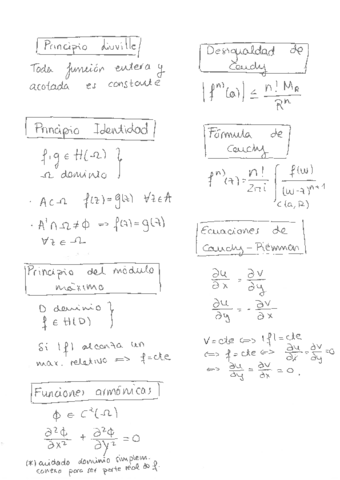 Principio Liuville
Toda función entera y
acotada es constante
Principio Identidad
f, g ∈ H(Ω) }
Ω dominio }
· A⊂Ω f(z)=g(z) ∀z∈A
· A'∩Ω≠∅ ⇒ f(z)=g(z)
∀z∈Ω
Principio del módulo
máximo
D dominio }
f ∈ H(D) }
Si |f| alcanza un
max. relativo ⇔ f=cte
Funciones armónicas
ϕ ∈ C²(Ω)
∂²ϕ/∂x² + ∂²ϕ/∂y² = 0
(*) cuidado dominio simplem.
conexo para ser parte real de f.
Desigualdad de
Cauchy
|fⁿ⁾(a)| ≤ n! M_R / Rⁿ
Fórmula de
Cauchy
fⁿ⁾(z) = n!/2πi ∫ f(w)/(w-z)ⁿ⁺¹
C(a,R)
Ecuaciones de
Cauchy-Riemman
∂u/∂x = ∂v/∂y
∂u/∂y = -∂v/∂x
V=cte ⇔ |f|=cte
⇔ f=cte ⇔ ∂u/∂x = ∂v/∂y = 0
⇔ ∂u/∂y = ∂v/∂x = 0.